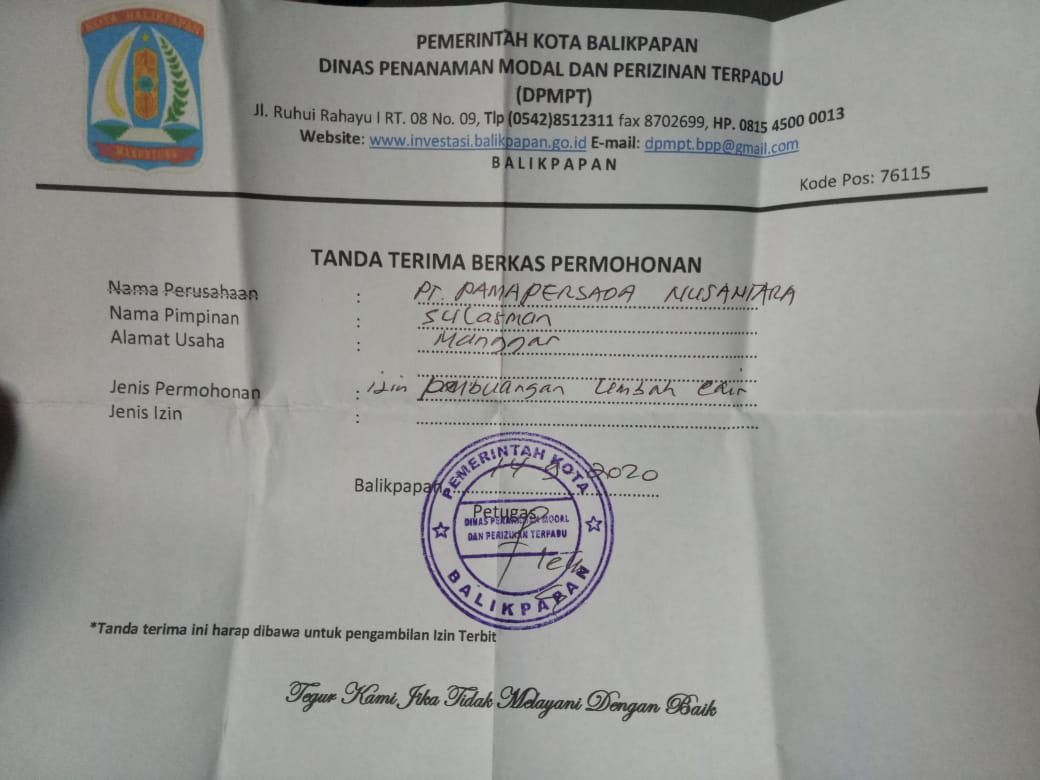 KOTA BALIKPAPAN
MANUNTUNG
PEMERINTAH KOTA BALIKPAPAN
DINAS PENANAMAN MODAL DAN PERIZINAN TERPADU
(DPMPT)
Jl. Ruhui Rahayu I RT. 08 No. 09, Tlp (0542)8512311 fax 8702699, HP. 0815 4500 0013
Website: www.investasi.balikpapan.go.id E-mail: dpmpt.bpp@gmail.com
BALIKPAPAN
Kode Pos: 76115
TANDA TERIMA BERKAS PERMOHONAN
Nama Perusahaan : PT. PAMAPERSADA NUSANTARA
Nama Pimpinan : Sulasman
Alamat Usaha : Manggar
Jenis Permohonan : izin pembuangan limbah cair
Jenis Izin :
Balikpapan, 14 2020
Petugas
PEMERINTAH KOTA
DINAS PENANAMAN MODAL
DAN PERIZINAN TERPADU
BALIKPAPAN
*Tanda terima ini harap dibawa untuk pengambilan Izin Terbit
Tegur Kami Jika Tidak Melayani Dengan Baik